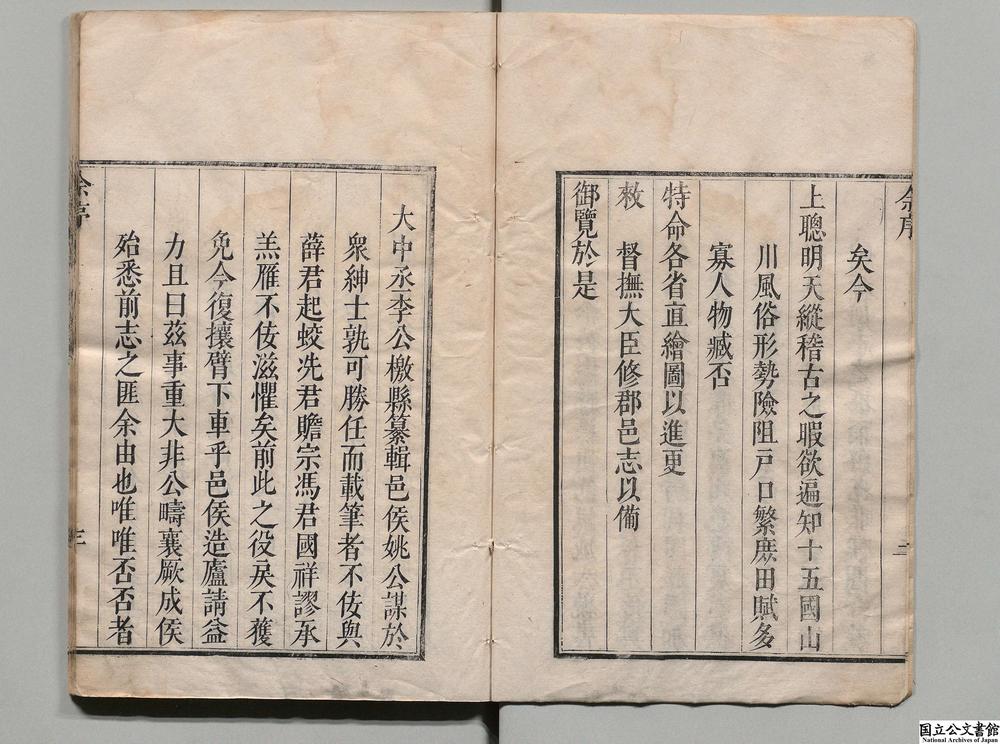 余序
矣今
上聰明天縱稽古之暇欲遍知十五國山
川風俗形勢險阻戸口繁庶田賦多
寡人物臧否
特命各省直繪圖以進更
敕 督撫大臣修郡邑志以備
御覽於是
二
大中丞李公檄縣纂輯邑侯姚公謀於
衆紳士孰可勝任而載筆者不佞與
薛君起蛟冼君贍宗馮君國祥謬承
羔雁不佞滋懼矣前此之役戾不獲
免今復攘臂下車乎邑侯造廬請益
力且曰茲事重大非公疇襄厥成侯
殆悉前志之匪余由也唯唯否否者
余序
三
国立公文書館
National Archives of Japan